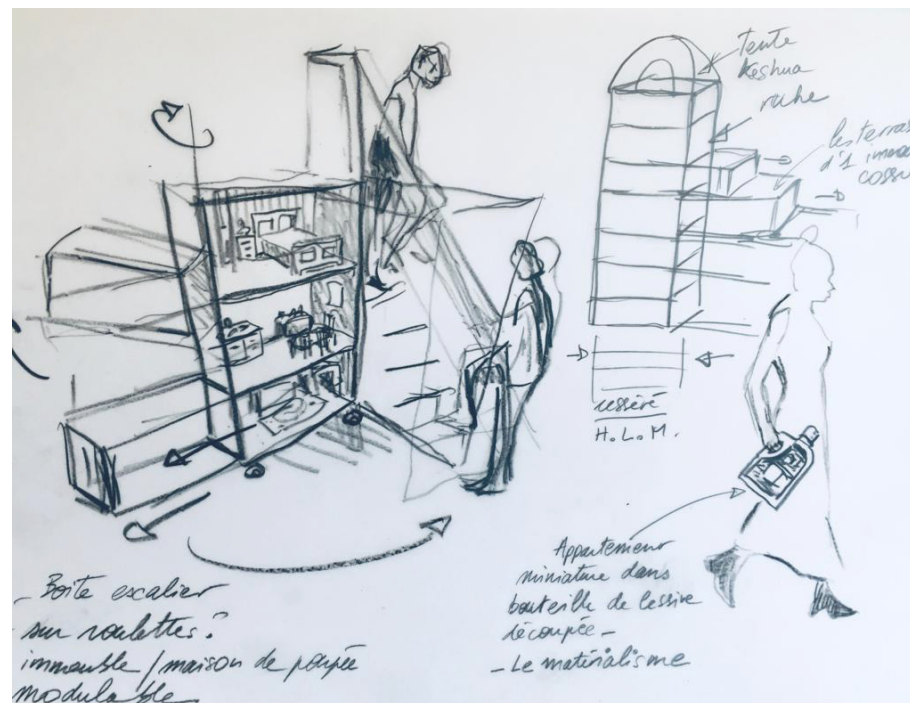 Tente
Keshua
ruche
les terras
d'1 imm
cossu
resserré
H.L.M.
Appartement
miniature dans
bouteille de lessive
découpée -
- Le matérialisme
- Boite escalier
sur roulettes :
immeuble / maison de poupée
modulable